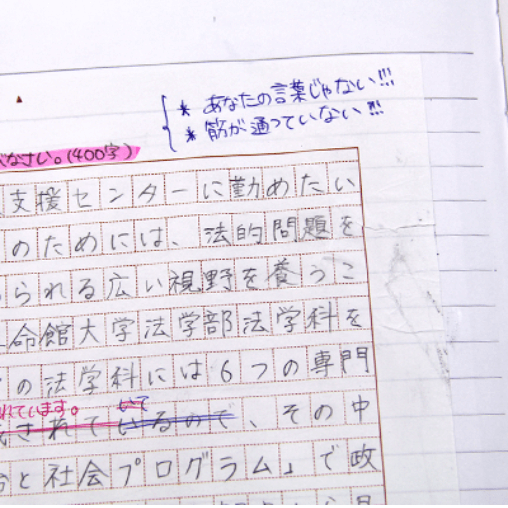 * あなたの言葉じゃない!!!
* 筋が通っていない!!!
なさい。(400字)
支援センターに勤めたい
のためには、法的問題を
られる広い視野を養うこ
命館大学法学部法学科を
の法学科には6つの専門
れています。 いて
されているので、その中
と社会プログラム」で政